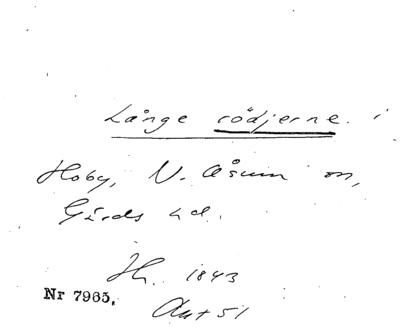 Långe rödjerne i
Hoby, N. Åsum sn,
Gärds hd.
Hr. 1843
Nr 7965.
Akt 51